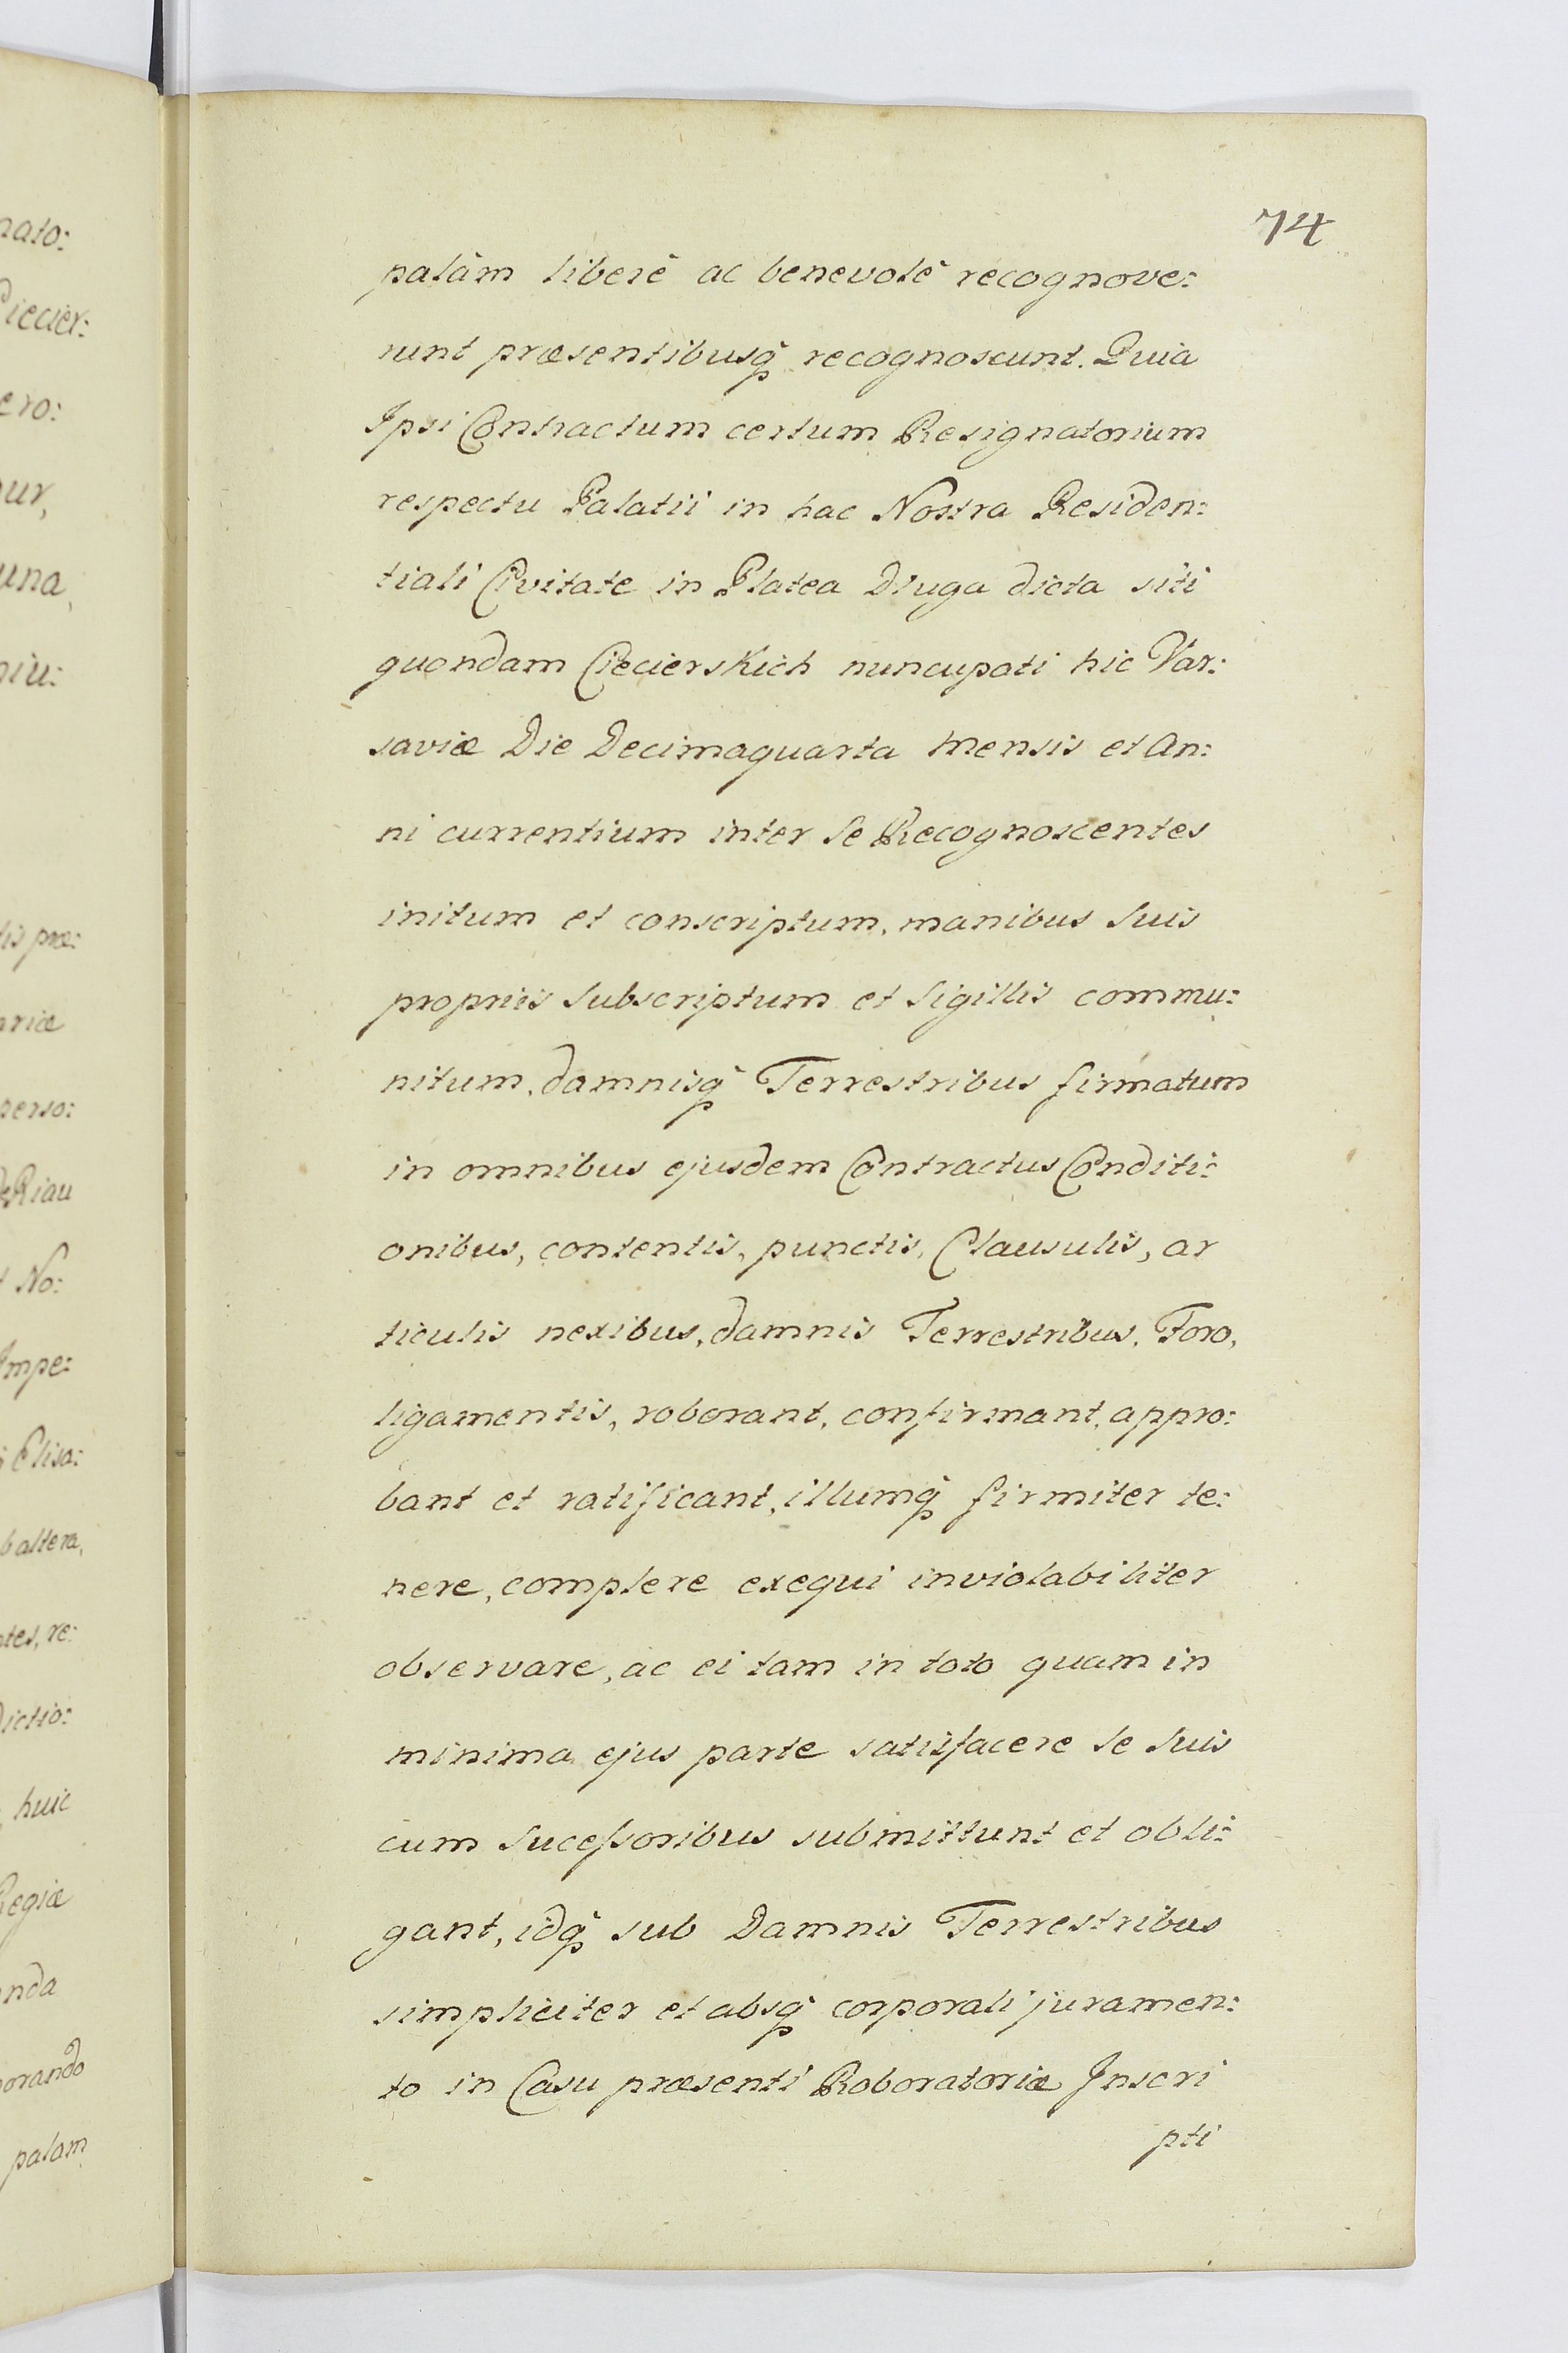 74
palàm liberè ac benevolè recognove:
runt præsentibusq̃ recognoscunt. Quia
Ipsi Contractum certum Resignatorium
respectu Palatii in hac Nostra Residen:
tiali Civitate in Platea Dluga dicta siti
quondam Ciecierskich nuncupati hic Var:
saviæ Die Decimaquarta Mensis et An:
ni currentium inter Se Recognoscentes
initum et conscriptum, manibus Suis
propriis Subscriptum et Sigillis commu:
nitum, damnisq̃ Terrestribus firmatum
in omnibus ejusdem Contractus Conditi:
onibus, contentis, punctis, Clausulis, ar
ticulis nexibus, damnis Terrestribus, Foro,
ligamentis, roborant, confirmant, appro:
bant et ratificant, illumq̃ firmiter te:
nere, complere exequi inviolabiliter
observare, ac ei tam in toto quam in
minima ejus parte satisfacere Se Suis
cum Sucessoribus submittunt et obli:
gant, idq̃ sub Damnis Terrestribus
simpliciter et absq̃ corporali juramen:
to in Casu præsenti Roboratoriæ Inscri
pti
nato:
Ciecier:
ero:
ur,
una,
niu:
tis præ:
ariæ
perso:
DeRiau
No:
Impe:
Elisa:
b altera,
ntes, re:
dictio:
huic
Regiæ
nda
orando
palam